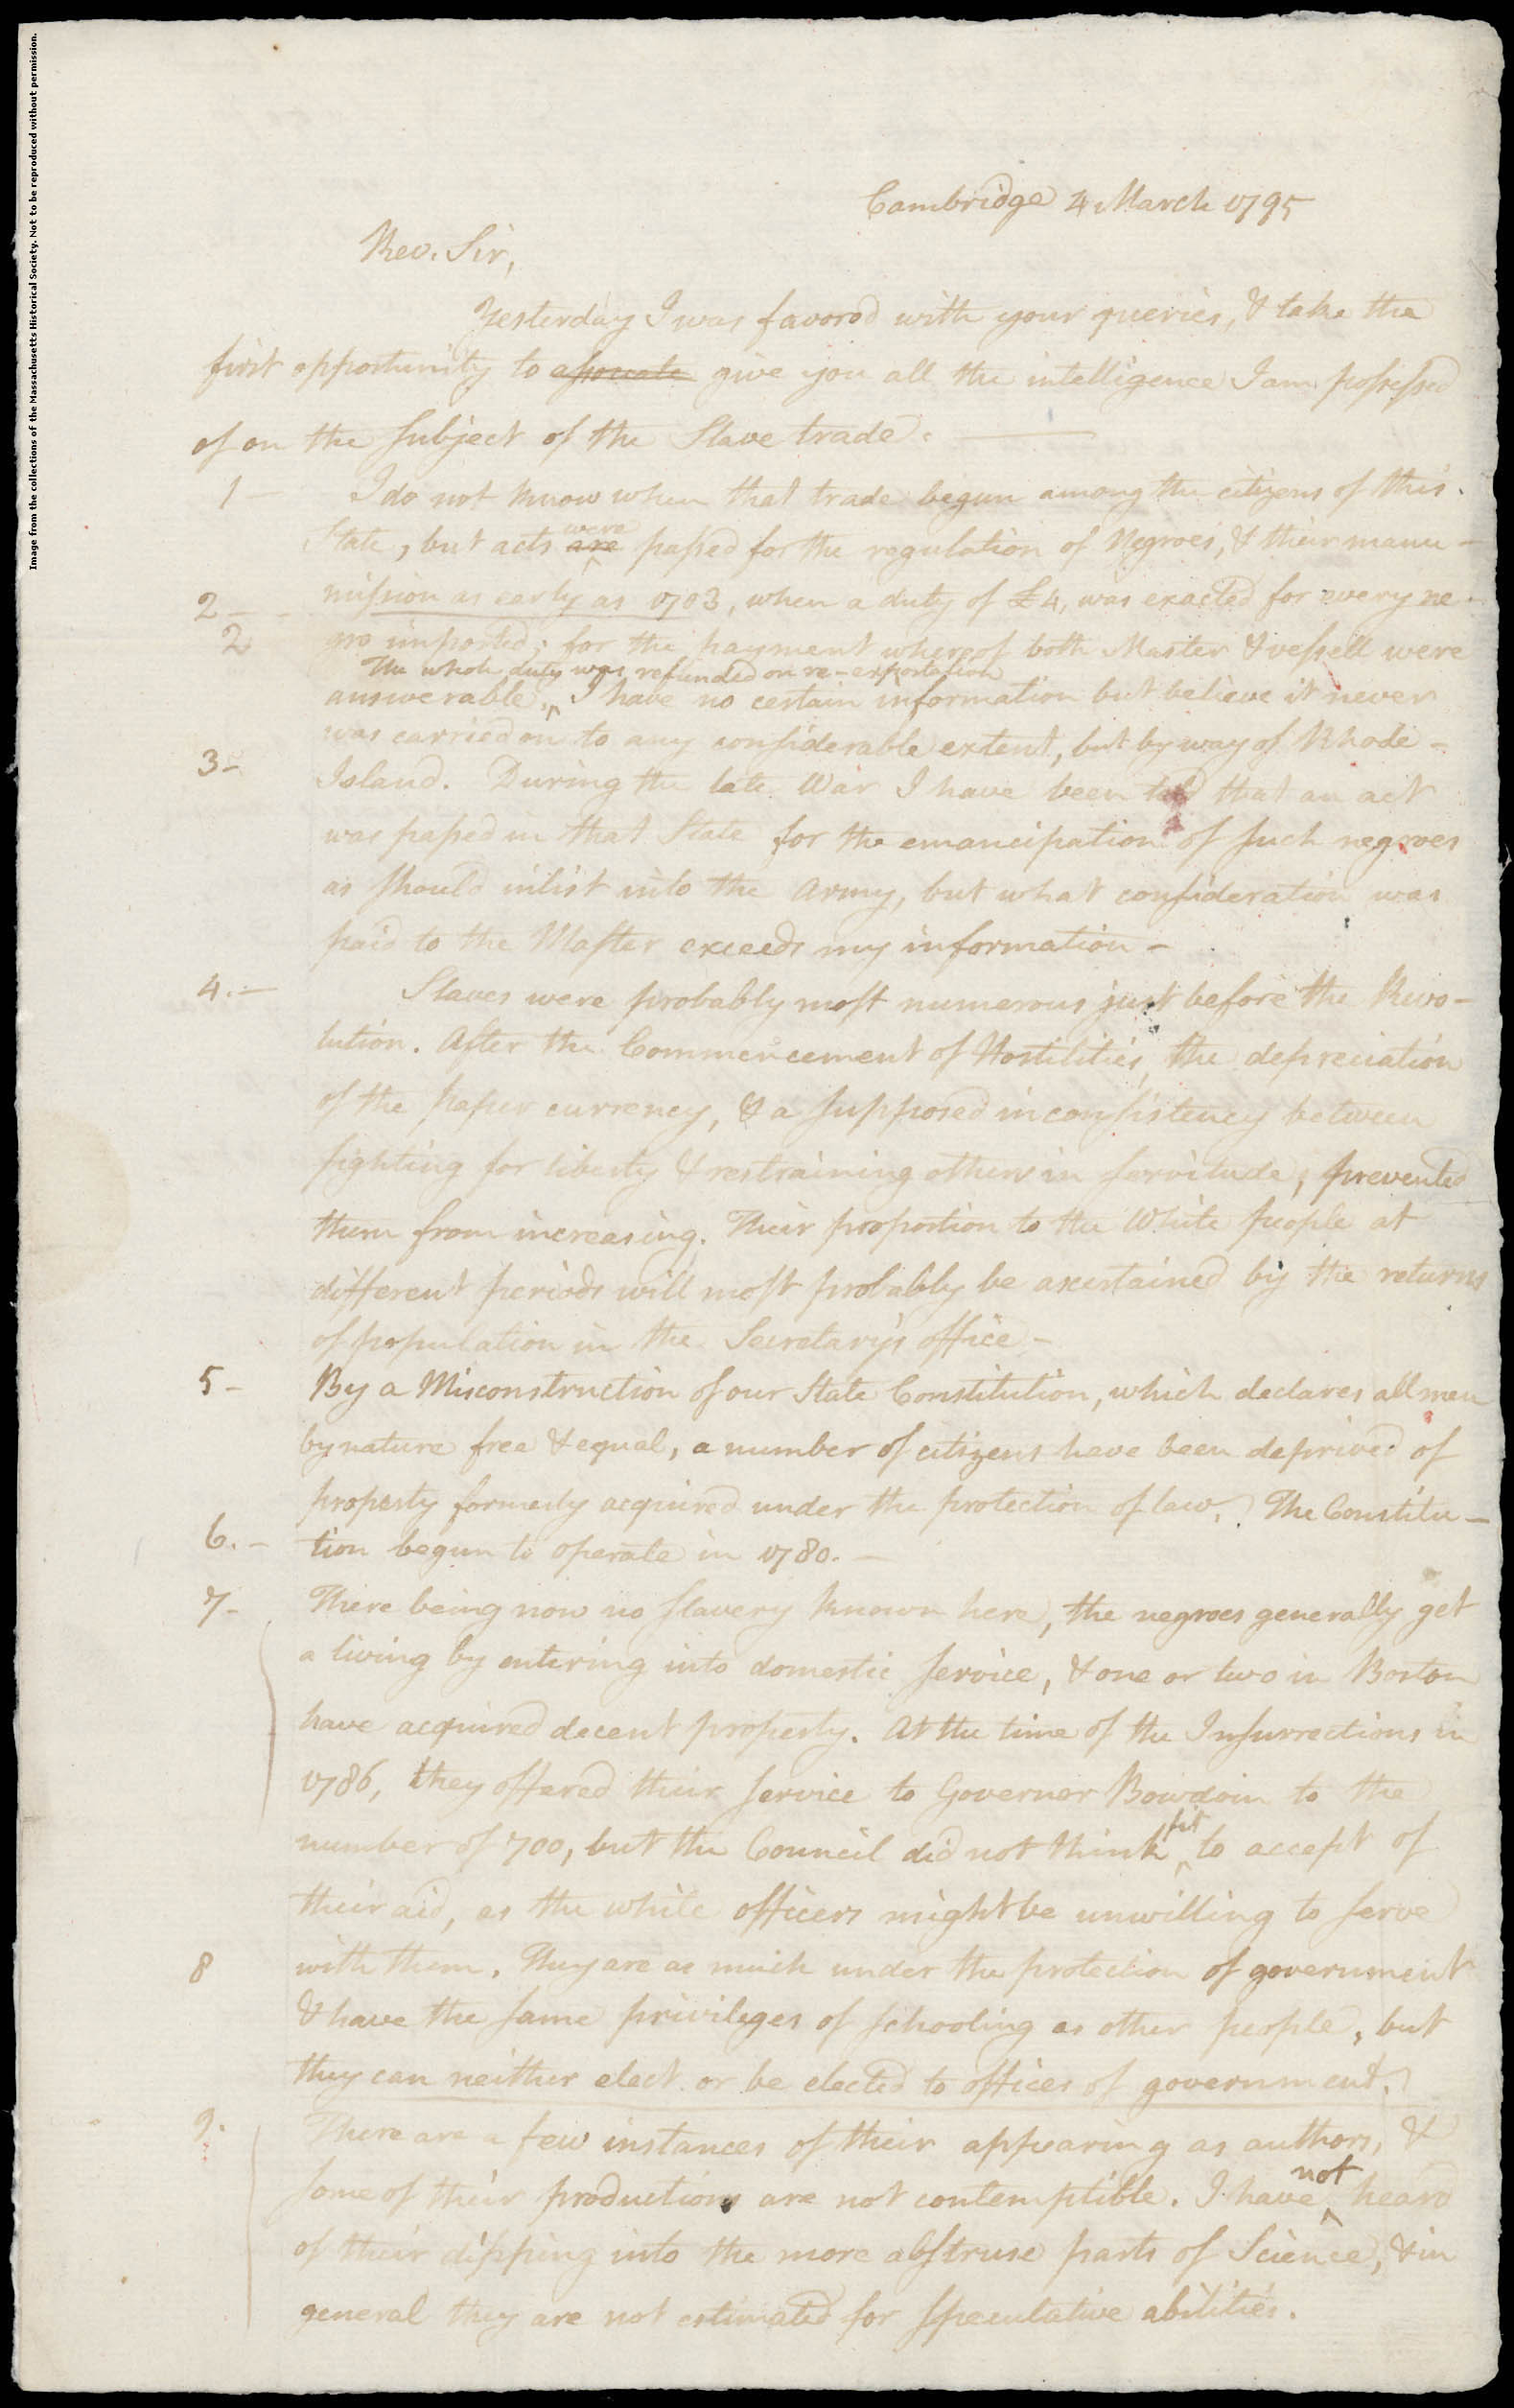 Image from the collections of the Massachusetts Historical Society. Not to be reproduced without permission.
Cambridge 4 March 1795
Rev. Sir,
Yesterday I was favored with your queries, & take the
first opportunity to give you all the intelligence I am possessed
of on the subject of the Slave trade. —
1 — I do not know when that trade begun among the citizens of this
State, but acts are were passed for the regulation of Negroes, & their manu-
2 — mission as early as 1703, when a duty of £4, was exacted for every ne-
2 gro imported; for the payment whereof both Master & vessell were
The whole duty was refunded on re-exportation
answerable. ^ I have no certain information but believe it never
was carried on to any considerable extent, but by way of Rhode-
3 - Island. During the late War I have been told that an act
was passed in that State for the emancipation of such negroes
as should inlist into the Army, but what consideration was
paid to the Master exceeds my information -
4. — Slaves were probably most numerous just before the Revo-
lution. After the Commencement of Hostilities, the depreciation
of the paper currency, & a supposed inconsistency between
fighting for liberty & restraining others in servitude, prevented
them from increasing. Their proportion to the White people at
different periods will most probably be ascertained by the returns
of population in the Secretary's office -
5 - By a Misconstruction of our State Constitution, which declares all men
by nature free & equal, a number of citizens have been deprived of
property formerly acquired under the protection of law. The Constitu-
6. - tion begun to operate in 1780. —
7 - There being now no slavery known here, the negroes generally get
a living by entering into domestic service, & one or two in Boston
have acquired decent property. At the time of the Insurrections in
1786, they offered their service to Governor Bowdoin to the
number of 700, but the Council did not think ^ fit to accept of
their aid, as the white officers might be unwilling to serve
8 with them. They are as much under the protection of government
& have the same privileges of schooling as other people, but
they can neither elect or be elected to offices of government.
9. There are a few instances of their appearing as authors, &
some of their productions are not contemptible. I have ^ not heard
of their dipping into the more abstruse parts of Science, & in
general they are not estimated for speculative abilities.